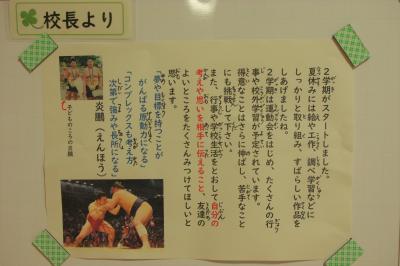 校長より
２学期がスタートしました。
夏休みには絵や工作、調べ学習などに
しっかりと取り組み、すばらしい作品を
しあげましたね。
２学期は運動会をはじめ、たくさんの行
事や校外学習が予定されています。
得意なことはさらに伸ばし、苦手なこと
にも挑戦して下さい。
また、行事や学校生活をとおして自分の
考えや思いを相手に伝えること、友達の
よいところをたくさんみつけてほしいと
思います。
「夢や目標を持つことが
がんばる原動力になる」
「コンプレックスも考え方
次第で強みや長所になる」
炎鵬（えんほう）
子どものころの炎鵬